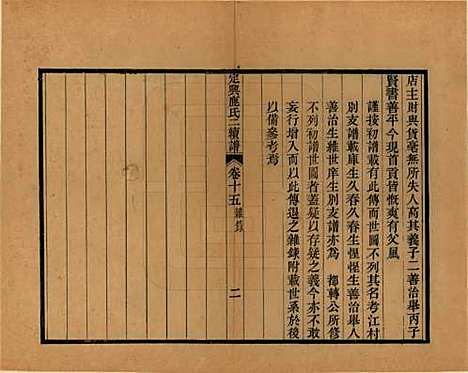 店主財與貨毫無所失人高其義子二善治舉丙子
賢書善平今現首貢皆慨爽有父風
謹按初譜載有此傳而世圖不列其名考江村
別支譜載庠生久春久春生惺惺生善治舉人
善治生維世庠生別支譜亦爲 都轉公所修
不列初譜世圖者蓋疑以存疑之義今亦不敢
妄行增入而以此傳退之雜錄附載世系於後
以備參考焉
定興鹿氏二續譜 卷十五 雜錄 二